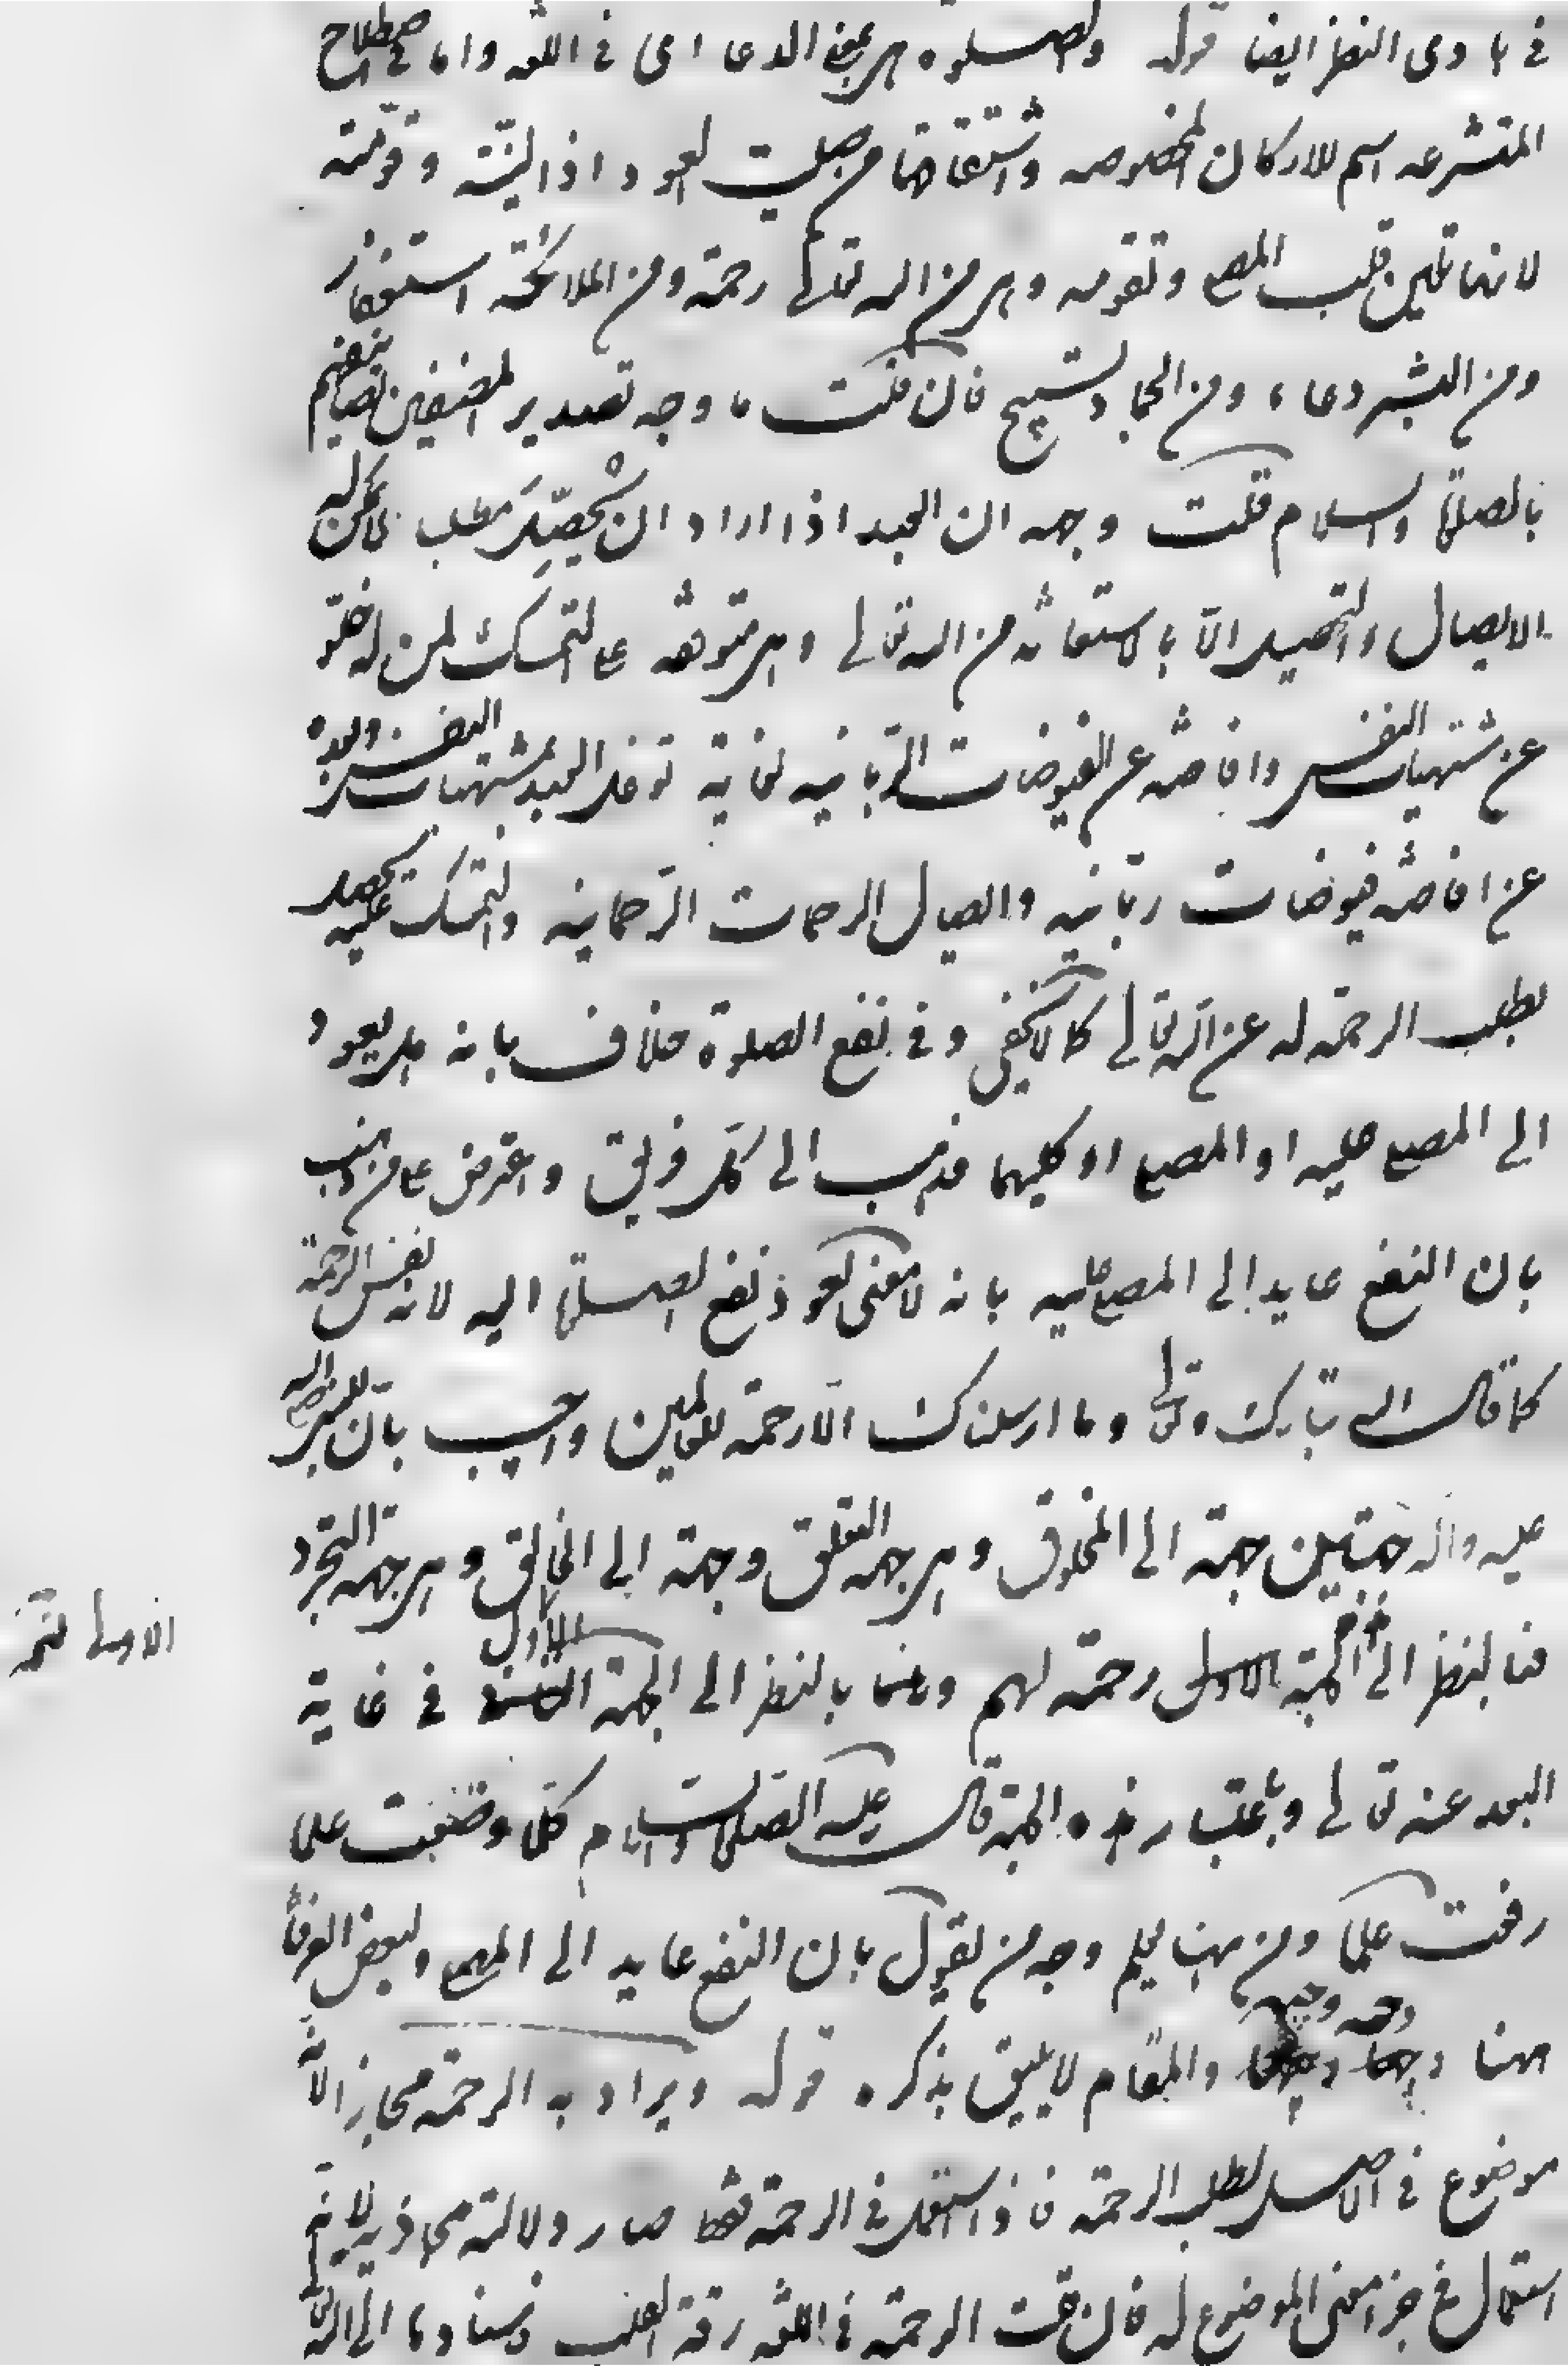 في بادى النظر ايضا قوله والصلوة هى بمعنى الدعا اى في اللغه واما في اصطلاح
المتشرعه اسم للاركان المخصوصه واشتقاقها من صليت العود اذا لينته وقومته
لانها تلين قلب المصلى وتقومه وهى من الله تعالى رحمة ومن الملائكة استغفار
ومن البشر دعاء ومن الجماد تسبيح فان قلت ما وجه تصدير المصنفين تصانيفهم
بالصلاة والسلام قلت وجهه ان العبد اذا اراد ان يحصّل مطلب لا يمكن له
الايصال والتحصيل الّا بالاستعانه من الله تعالى وهى متوقفه على التمسك لمن له خلوّ
عن مشتهيات النفس وافاضه عن الفيوضات الرّبانيه لغاية توغل العبد بمشتهيات النفس وبعده
عن افاضه فيوضات ربّانيه وايصال الرحمات الرّحمانيه والتمسك عليه يحصل
بطلب الرحمة له عن الله تعالى كما لا يخفى وفى نفع الصلوة خلاف بانه هل يعود
الى المصلى عليه او المصلى او كليهما فذهب الى كلّ فريق واعترض على من ذهب
بان النفع عايد الى المصلى عليه بانه لا معنى لعود نفع الصلاة اليه لانه نفس الرحمة
كما قال الله تبارك وتعالى وما ارسلناك الّا رحمة للعالمين واجيب بانّ للنبى صلى الله
عليه واله جهتين جهة الى المخلوق وهى جهة التعلق وجهة الى الخالق وهى جهة التجرّد
فبالنظر الى الجهة الاولى رحمة لهم واما بالنظر الى الجهة الاولى في غاية
الاولى نسخه
البعد عنه تعالى وباعتبار هذه الجهة قال عليه الصلاة والسلام كلّما وضعت علما
رفعت علما ومن هنا يعلم وجه من يقول بان النفع عايد الى المصلى ولبعض العرفاء
وجه وجيه
ههنا والمقام لا يليق بذكره قوله ويراد به الرحمة مجازا لانّه
موضوع في الاصل لطلب الرحمة فاذا استعمل في الرحمة فقط صار دلالته مجازيه لانه
استعمال في جزء معنى الموضوع له فان قلت الرحمة في اللغه رقة القلب واسنادها الى الله